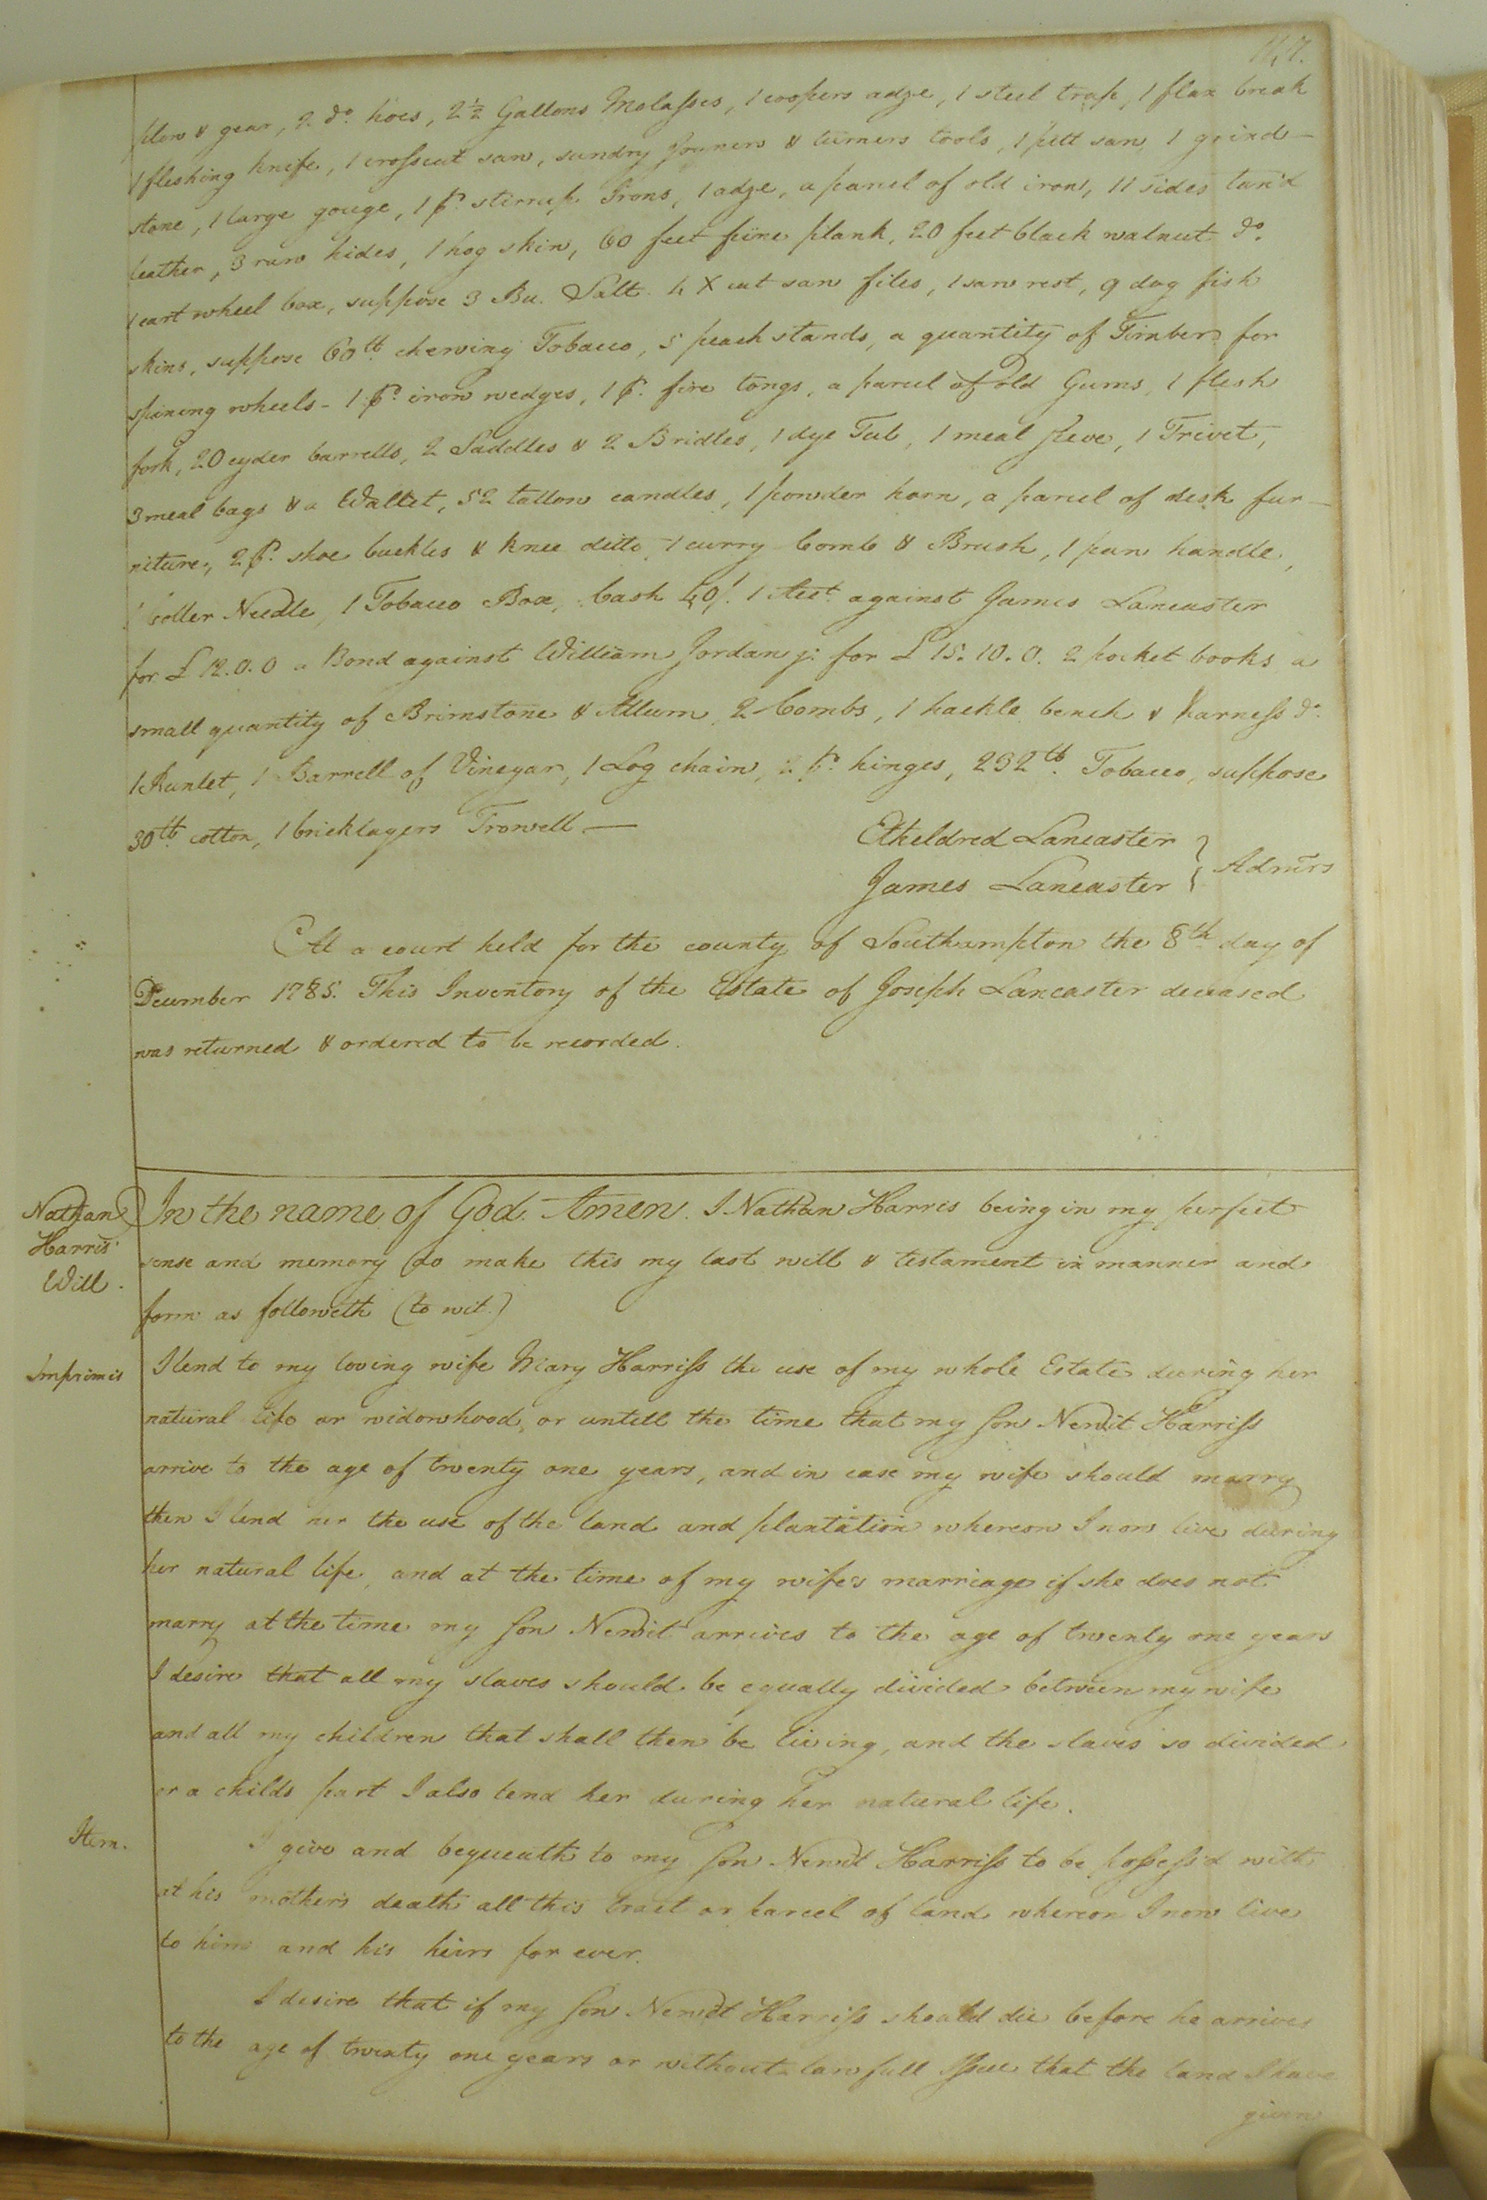 147.
plow & gear, 2 do. hoes, 2½ Gallons Molasses, 1 coopers adze, 1 steel trap, 1 flax break
1 fleshing knife, 1 crosscut saw, sundry Joyners & turners tools, 1 pitt saw 1 grind-
stone, 1 large gouge, 1 pr. stirrup Irons, 1 adze, a parcel of old iron, 11 sides tan'd
leather, 3 raw hides, 1 hog skin, 60 feet pine plank, 20 feet black walnut do.
1 cart wheel box, suppose 3 Bu. Salt. 4 X cut saw files, 1 saw rest, 9 dog fish
skins, suppose 60 lb. chewing Tobacco, 5 peach stands, a quantity of Timber for
spining wheels - 1 pr. iron wedges, 1 pr. fire tongs, a parcel of old Gums, 1 flesh
fork, 20 cyder barrells, 2 Saddles & 2 Bridles, 1 dye Tub, 1 meal sieve, 1 Trivet,
3 meal bags & a Wallet, 52 tallow candles, 1 powder horn, a parcel of desk fur-
niture, 2 pr. shoe buckles & knee ditto, 1 curry Comb & Brush, 1 pan handle,
1 Coller Needle, 1 Tobacco Box, Cash 40/. 1 Acct. against James Lancaster
for £12.0.0 a Bond against William Jordan jr. for £15.10.0. 2 pocket books a
small quantity of Brimstone & Allum, 2 Combs, 1 hackle bench & harness do.
1 Runlet, 1 Barrell of Vinegar, 1 Log chain, 2 pr. hinges, 232 lb. Tobacco, suppose
30 lb cotton, 1 bricklayers Trowell —
Etheldred Lancaster
James Lancaster } Admrs
At a court held for the county of Southampton the 8th day of
December 1785. This Inventory of the Estate of Joseph Lancaster deceased
was returned & ordered to be recorded.
Nathan
Harris'
Will.
In the name of God. Amen. I Nathan Harris being in my perfect
sense and memory do make this my last will & testament in manner and
form as followeth (to wit.)
Imprimis
I lend to my loving wife Mary Harriss the use of my whole Estate during her
natural life or widowhood, or untill the time that my son Newit Harriss
arrive to the age of twenty one years, and in case my wife should marry
then I lend her the use of the land and plantation whereon I now live during
her natural life, and at the time of my wife's marriage if she does not
marry at the time my son Newit arrives to the age of twenty one years
I desire that all my slaves should be equally divided between my wife
and all my children that shall then be living, and the slaves so divided
or a childs part I also lend her during her natural life.
Item.
I give and bequeath to my son Newit Harriss to be possess'd with
at his mother's death all this tract or parcel of land whereon I now live
to him and his heirs for ever.
I desire that if my son Newit Harriss should die before he arrives
to the age of twenty one years or without lawfull Issue that the land I have
given